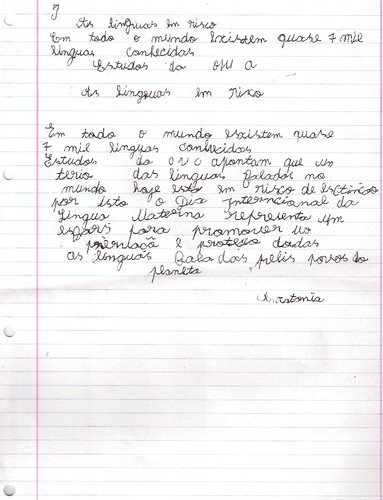 J
As linguas em risco
Em todo o mundo existem quase 7 mil
linguas conhecidas
Estudos da onu a
As linguas em risco
Em todo o mundo existem quase
7 mil linguas conhecidas
Estudos da onu apontam que un
terio das linguas faladas no
mundo hoje esta em risco de
por isto o Dia Internacional da
Lingua Materna representa um
para promover
e proteção dadas
as linguas faladas pelis povos do
planeta
Antonia